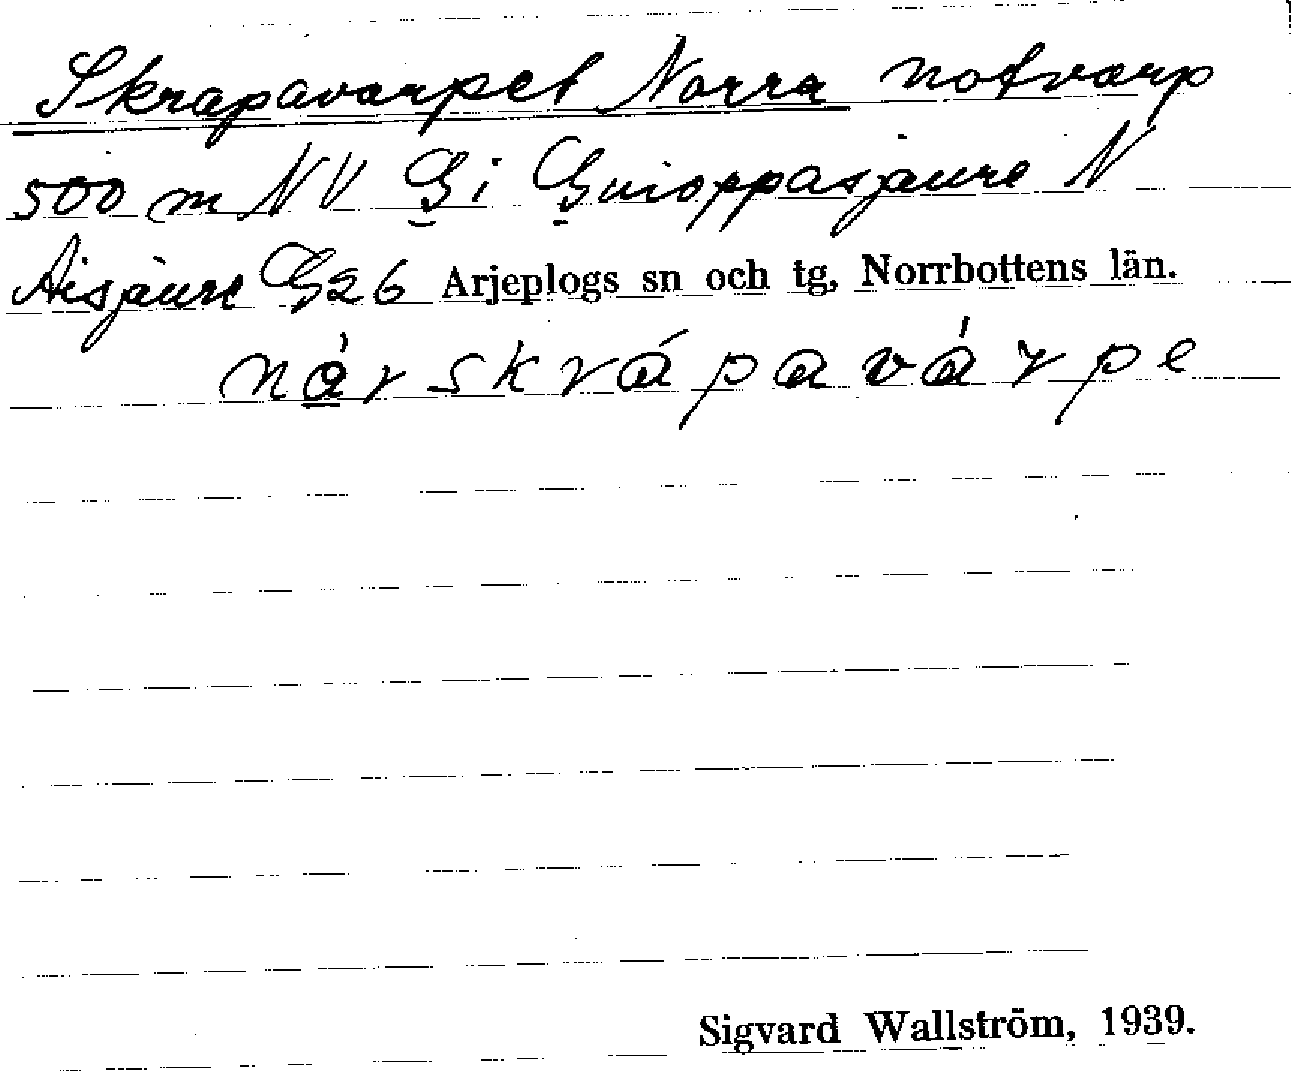 Skrapavarpet Norra notvarp
500 m NV G i Guioppasjaure N
Aisjaure G26 Arjeplogs sn och tg, Norrbottens län.
nárskrápavárpe
Sigvard Wallström, 1939.